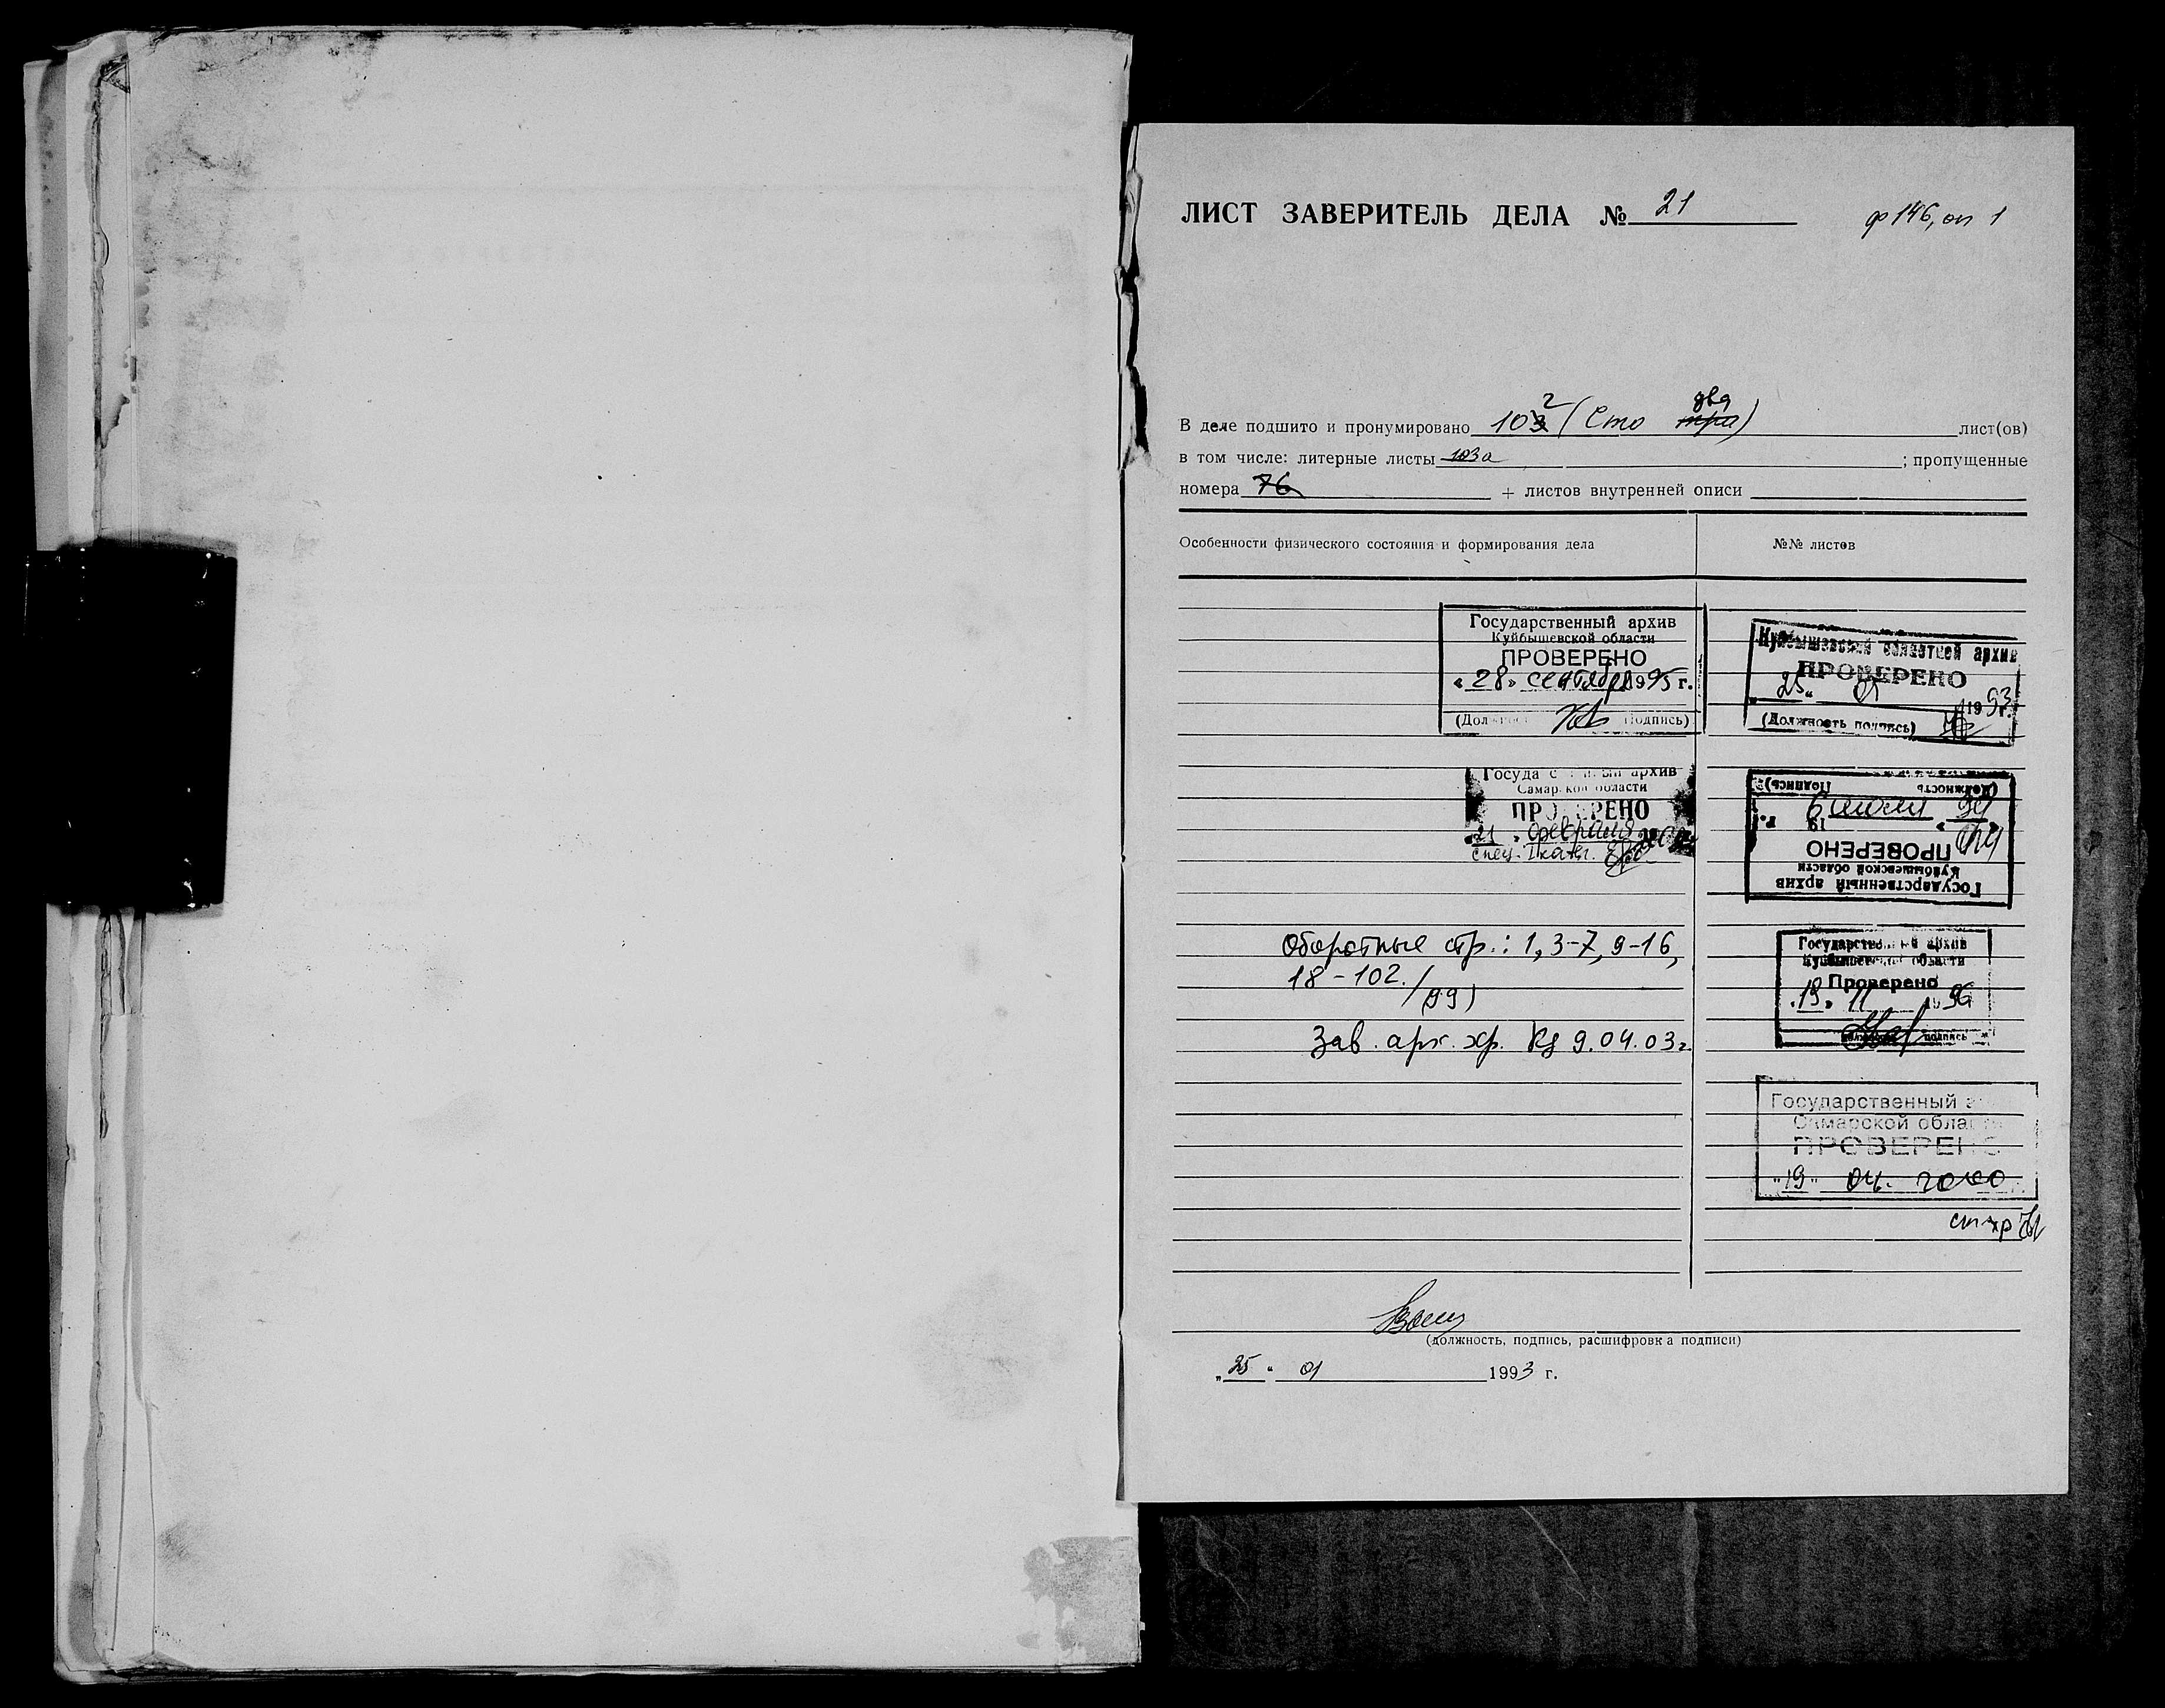 ЛИСТ ЗАВЕРИТЕЛЬ ДЕЛА № 21 ф 146, оп 1
В деле подшито и пронумировано 102 (Сто два) лист(ов)
в том числе: литерные листы 103а ; пропущенные
номера 76 + листов внутренней описи
Особенности физического состояния и формирования дела №№ листов
Государственный архив
Куйбышевской области
ПРОВЕРЕНО
«28» сентября 1995 г.
(Должност Подпись)
Куйбышевский областной архив
ПРОВЕРЕНО
25 01 1993 г.
(Должность подпись)
Государственный архив
Самарской области
ПРОВЕРЕНО
21 февраля
спец. I кат.
Государственный архив
Куйбышевской области
ПРОВЕРЕНО
94 19 г.
(Должность Подпись)
Оборотные стр.: 1, 3-7, 9-16,
18-102. / (99)
Зав. арх. хр. 9.04.03г.
Государственный архив
Куйбышевской области
Проверено
«19» 11 1996
подпись
Государственный
Самарской области
ПРОВЕРЕНО
"19" 04. 2000
ст хр
(должность, подпись, расшифровка подписи)
„25" 01 1993 г.